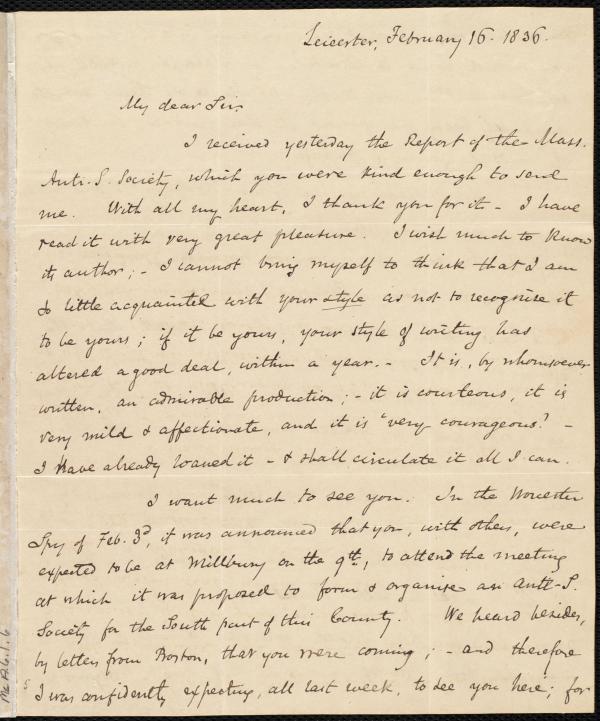 Leicester, February 16. 1836.
My dear Sir.
I received yesterday the Report of the Mass.
Anti-S. Society, which you were kind enough to send
me. With all my heart, I thank you for it - I have
read it with very great pleasure. I wish much to know
its author; - I cannot bring myself to think that I am
so little acquainted with your style as not to recognise it
to be yours; if it be yours, your style of writing has
altered a good deal, within a year. - It is, by whomsoever
written, an admirable production; - it is courteous, it is
very mild & affectionate, and it is "very courageous." -
I have already loaned it - & shall circulate it all I can.
I want much to see you. In the Worcester
Spy of Feb. 3d, it was announced that you, with others, were
expected to be at Millbury on the 9th, to attend the meeting
at which it was proposed to form & organise an Anti-S.
Society for the South part of this County. We heard besides,
by letters from Boston, that you were coming; - and therefore
I was confidently expecting, all last week, to see you here; for
Ms.A.1.6